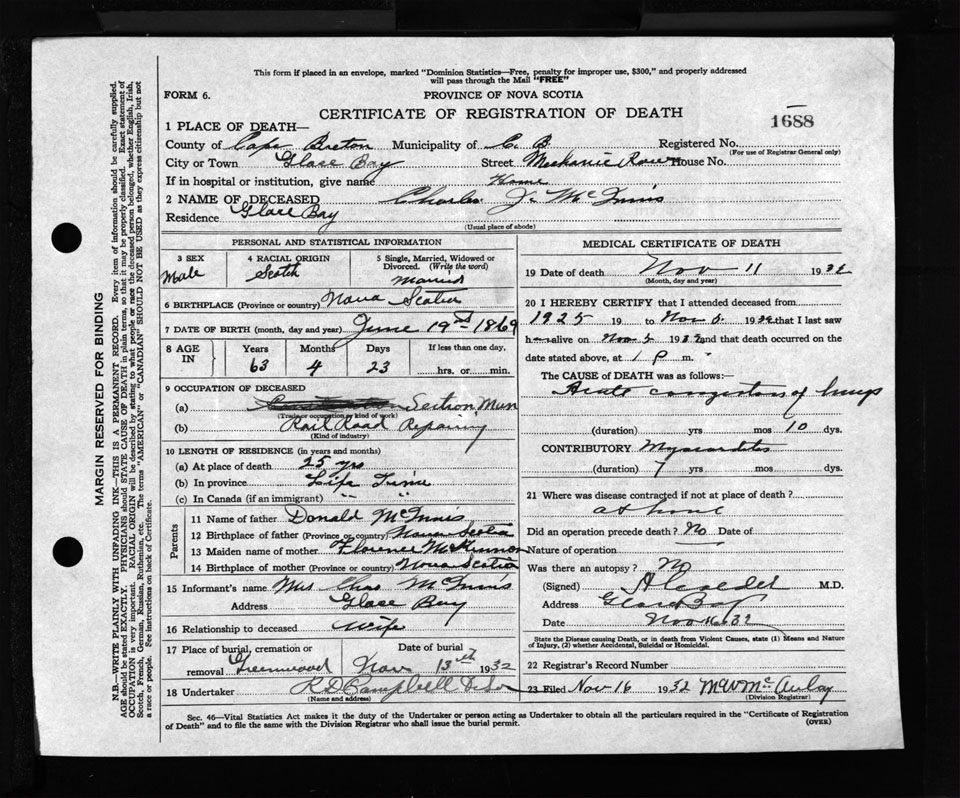 This form if placed in an envelope, marked "Dominion Statistics—Free, penalty for improper use, $300," and properly addressed
will pass through the Mail "FREE"
FORM 6. PROVINCE OF NOVA SCOTIA
CERTIFICATE OF REGISTRATION OF DEATH
1688
1 PLACE OF DEATH—
County of Cape Breton Municipality of C. B. Registered No.
(For use of Registrar General only)
City or Town Glace Bay Street Mechanic Row House No.
If in hospital or institution, give name Home
2 NAME OF DECEASED Charles J. McInnis
Residence Glace Bay
(Usual place of abode)
PERSONAL AND STATISTICAL INFORMATION
3 SEX Male
4 RACIAL ORIGIN Scotch
5 Single, Married, Widowed or Divorced. (Write the word) Married
6 BIRTHPLACE (Province or country) Nova Scotia
7 DATE OF BIRTH (month, day and year) June 19th 1869
8 AGE IN Years 63 Months 4 Days 23 If less than one day, hrs. or min.
9 OCCUPATION OF DECEASED
(a) Section Man
(Trade or occupation or kind of work)
(b) Rail Road Repairing
(Kind of industry)
10 LENGTH OF RESIDENCE (in years and months)
(a) At place of death 25 yrs
(b) In province Life Time
(c) In Canada (if an immigrant) " "
Parents
11 Name of father Donald McInnis
12 Birthplace of father (Province or country) Nova Scotia
13 Maiden name of mother Florence McKinnon
14 Birthplace of mother (Province or country) Nova Scotia
15 Informant's name Mrs Chas McInnis
Address Glace Bay
16 Relationship to deceased Wife
17 Place of burial, cremation or removal Greenwood Date of burial Nov 13th 1932
18 Undertaker R D Campbell
(Name and address)
MEDICAL CERTIFICATE OF DEATH
19 Date of death Nov 11 1932
(Month, day and year)
20 I HEREBY CERTIFY that I attended deceased from
1925 19 to Nov 1932 that I last saw
h alive on Nov 19 and that death occurred on the
date stated above, at 1 P m.
The CAUSE of DEATH was as follows:—
Acute congestion of lungs
(duration) yrs mos 10 dys.
CONTRIBUTORY Myocarditis
(duration) 7 yrs mos dys.
21 Where was disease contracted if not at place of death?
at home
Did an operation precede death? No Date of
Nature of operation
Was there an autopsy? No
(Signed) M.D.
Address Glace Bay
Date Nov 16 32
State the Disease causing Death, or in death from Violent Causes, state (1) Means and Nature
of Injury, (2) whether Accidental, Suicidal or Homicidal.
22 Registrar's Record Number
23 Filed Nov 16 1932 M W McAulay
(Division Registrar)
Sec. 46—Vital Statistics Act makes it the duty of the Undertaker or person acting as Undertaker to obtain all the particulars required in the "Certificate of Registration
of Death" and to file the same with the Division Registrar who shall issue the burial permit. (OVER)
MARGIN RESERVED FOR BINDING
N.B.—WRITE PLAINLY WITH UNFADING INK—THIS IS A PERMANENT RECORD. Every item of information should be carefully supplied.
AGE should be stated EXACTLY. PHYSICIANS should STATE CAUSE OF DEATH in plain terms, so that it may be properly classified. Exact statement of
OCCUPATION is very important. RACIAL ORIGIN will be described by stating to what people or race the deceased person belonged, whether English, Irish,
Scotch, French, German, Russian, Ruthenian, etc. The terms "AMERICAN" or "CANADIAN" SHOULD NOT BE USED as they express citizenship but not
a race or people. See instructions on back of Certificate.